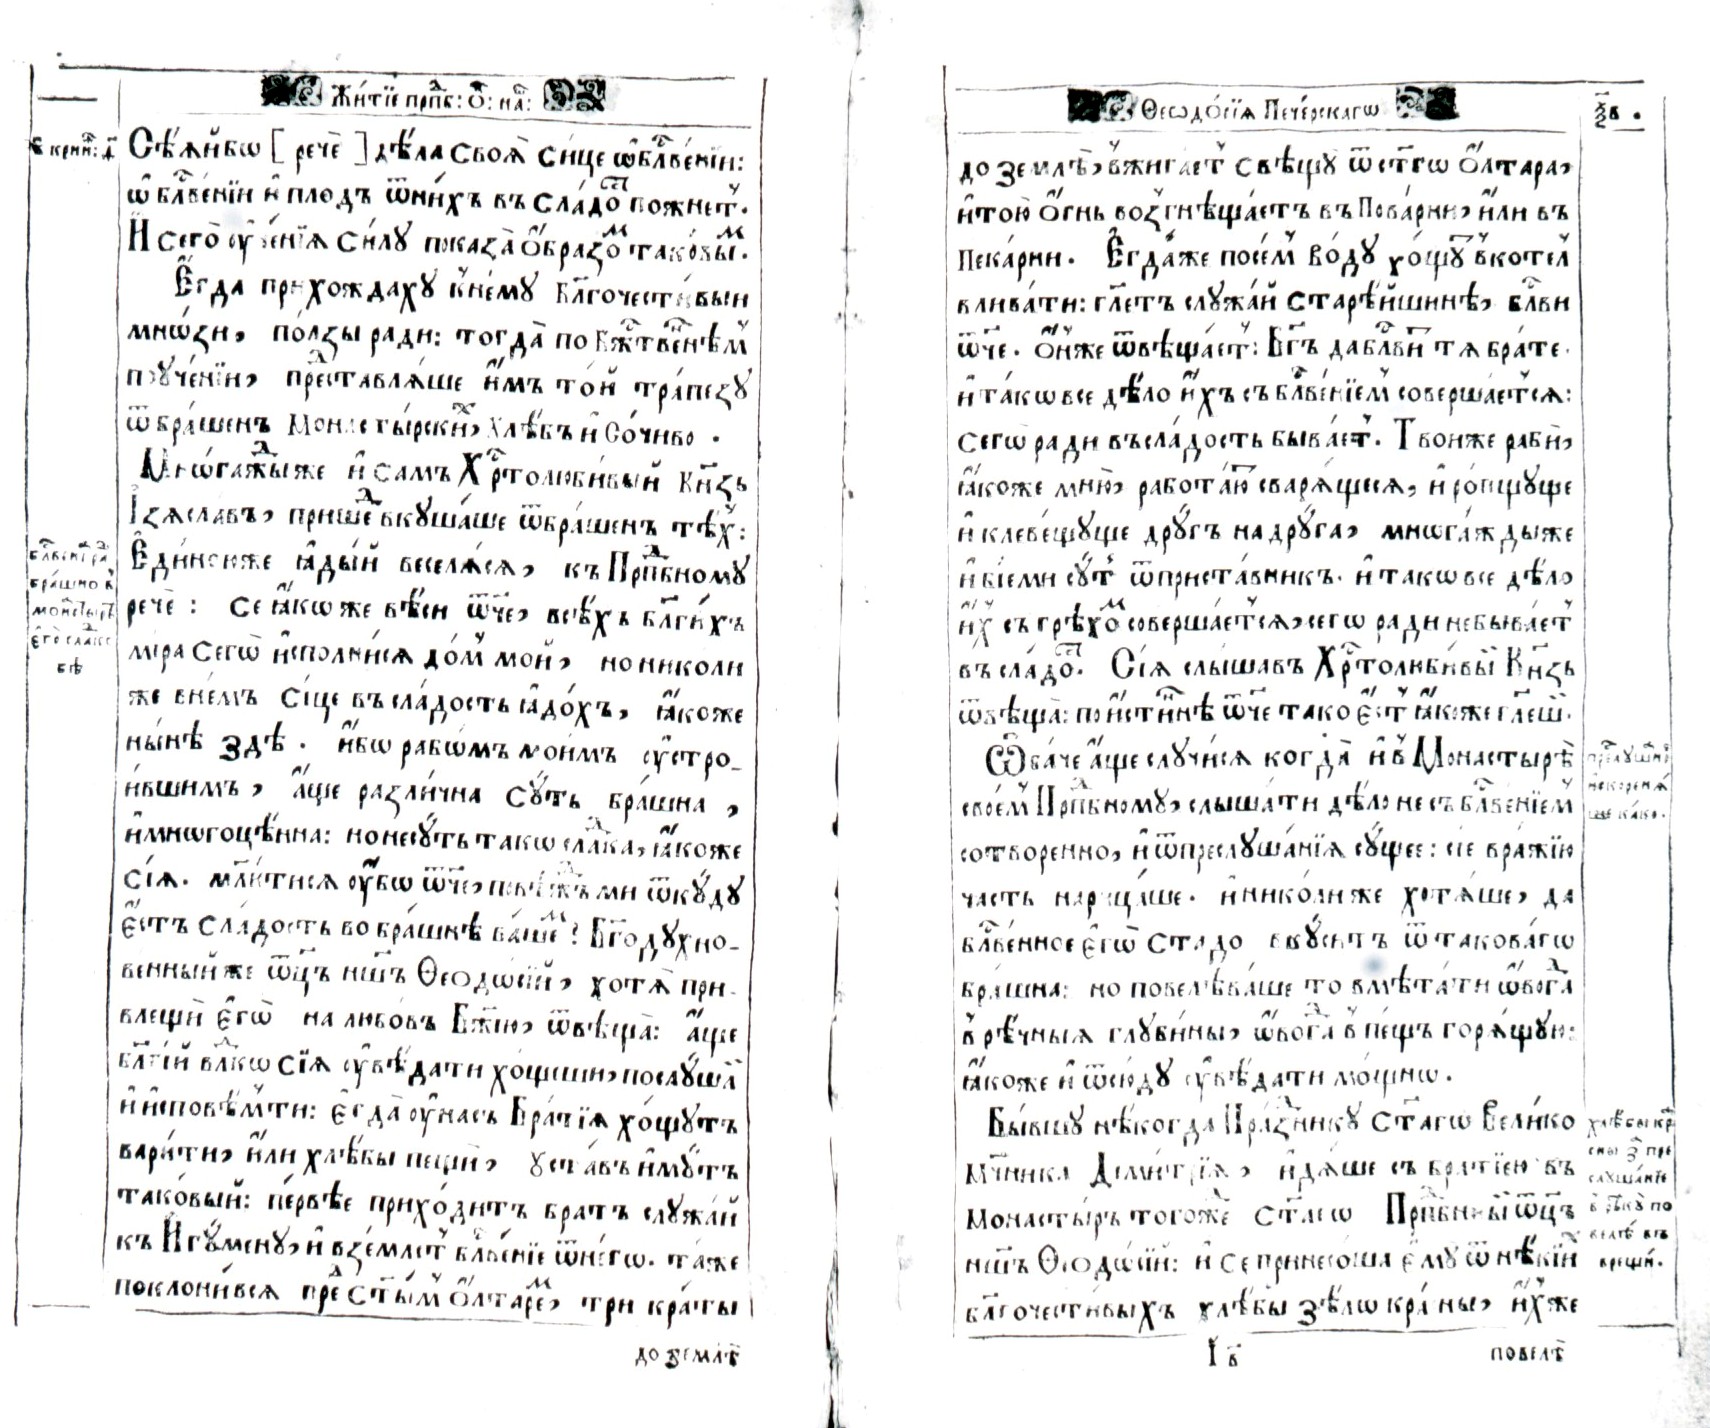 Житїе прпⷣб: О҃: на́ш:
в҃ коринѳ: д҃
Сѣ́ѧйбѡ [ речѐ ] дѣ́ла своѧ̀ си́це ѡ҆ бл҃гве́нїи:
ѡ҆ бл҃гве́нїи и҆ пло́дъ ѿ ни́хъ въ сла́дость пожне́тъ.
И҆ сегѡ̀ оу҆че́нїѧ си́лу показа̀ ѻ҆́бразом̾ таковы́м.
Е҆гда̀ прихождаху к̾нему̀ бл҃гочести́выи
мнѡ́зи, по́лзы ради: тогда̀ по бж҃твеннѣм̾
поуче́нїи, представлѧ́ше и҆̀мъ то́й тра́пезу
ѿ бра́шенъ Монасты́рских, хлѣ́бъ и҆ со́чиво .
Мнѡ́гажды же и҆ самъ Хрⷭ҇толюби́вый Кн҃зь
І҆зѧсла́въ, прише́д вкуша́ше ѿ бра́шенъ тѣ́х:
бл҃гве́нїѧ рад̾
бра́шно в̾
монасты́рѣ
є҆гѡ̀ слад̾ко
бѣ
Е҆ди́ноюже ꙗ҆ды́й веселѧ́сѧ, къ Прпⷣбному
речѐ : се ꙗ҆́коже вѣ́си ѿч҃е, всѣ́хъ бл҃ги́хъ
мі́ра сегѡ̀ и҆спо́лнисѧ до́м̾ мо́й, но николи
же в не́мъ си́це въ сла́дость ꙗ҆до́хъ, ꙗ҆́коже
ны́нѣ здѣ̀ . и҆́бо рабѡ́мъ мои́мъ оу҆стро-
и́вшимъ, а҆́ще разли́чна су́ть бра́шна ,
и҆ многоцѣ́нна: но не су́ть такѡ сладка, ꙗ҆́коже
сїѧ̀. мл҃и́тисѧ оу҆́бѡ ѿч҃е, повѣ́ждь ми ѿку́ду
є҆́стъ сла́дость во бра́шнѣ ва́шем ? Бг҃одухно-
ве́нный же ѿц҃ъ нш҃ъ Ѳеѻдѡ́сїй, хотѧ̀ при-
влещѝ є҆гѡ̀ на любо́въ Бж҃їю, ѿвѣща̀: а҆́ще
бл҃гі́й влⷣкѡ сїѧ̀ оу҆вѣ́дати хо́щеши, послу́шай
и҆ и҆сповѣ́м̾ти: є҆гда̀ оу҆ насъ Бра́тїѧ хо́щутъ
вари́ти, и҆лѝ хлѣ́бы пещѝ, уста́въ и҆́мутъ
тако́вый: пе́рвѣе прихо́дитъ братъ служа́й
къ И҆гу́мену, и҆ взе́млетъ бл҃гве́нїе ѿ негѡ̀. та́же
поклони́всѧ пред ст҃ы́м̾ ѻ҆лтаре́м, три кра́ты
до землѣ̀
Ѳеѻдо́сїѧ Пече́рскагѡ
ѯв .
до землѣ̀, в̾жига́ет̾ свѣщу̀ ѿ ст҃гѡ ѻ҆лтара̀,
и҆ то́ю ѻ҆́гнь возгнѣща́етъ въ Пова́рни, и҆́ли въ
Пека́рни . Е҆гда́же посе́м̾ во́ду хо́щут̾ в̾коте́л
влива́ти: гл҃етъ служа́й старѣ́йшинѣ, бл҃гви
ѿч҃е . ѻ҆́нже ѿвѣща́ет̾: Бг҃ъ да бл҃гви́т тѧ бра́те .
и҆ та́кѡ все дѣ́ло и҆́хъ съ бл҃гве́нїем̾ соверша́етсѧ:
сегѡ̀ ради въ сла́дость быва́ет̾. Твои́же рабѝ,
ꙗ҆́коже мню̀, рабо́тают сварѧ́щесѧ, и҆ ро́пщуще
и҆ клеве́щуще дру́гъ на дру́га, мнѡга́ждыже
и҆ бїе́ми су́т̾ ѿ приста́вникъ . и҆ такѡ все дѣ́ло
и҆́х̾ съ грѣхо́м соверша́етсѧ, сегѡ ради не быва́ет̾
въ сла́дость. Сїѧ̀ слы́шавъ Хрⷭ҇толюби́вый Кн҃зь
ѿвѣща̀: по и҆́стиннѣ ѿч҃е тако є҆́ст̾ ꙗ҆́коже гл҃еш.
Ѻ҆ба́че а҆́ще случи́сѧ когда̀ и҆ в̾ Монастырѣ̀
свое́м̾ Прпⷣбному, слы́шати дѣ́ло не съ бл҃гве́нїем̾
сотворе́нно, и҆ ѿ преслуша́нїѧ су́щее: сїе вра́жїю
часть нарица́ше . и҆ николи́же хотѧ́ше, да
бл҃гве́нное є҆гѡ̀ ста́до вку́ситъ ѿ такова́гѡ
бра́шна: но повелѣва́ше то вмѣта́ти ѡ҆вогда̀
в̾ рѣ́чныѧ глубины̀, ѡ҆вогда̀ в̾ пе́щъ горѧ́щую:
ꙗ҆́коже и҆ ѿсю́ду оу҆вѣ́дати мо́щнѡ .
Бы́вшу нѣ́когда Пра́зднику ст҃а́гѡ Вели́ко
Мч҃ника Дими́трїѧ, и҆дѧ́ше съ бра́тїею въ
Монасты́ръ того́же ст҃а́гѡ Прпⷣбный ѿц҃ъ
нш҃ъ Ѳеѻдѡ́сїй: и҆ се принесо́ша є҆му̀ ѿ нѣ́кїих
бл҃гочести́выхъ хлѣ́бы ѕѣ́лѡ кра́сны, и҆́хже
хлѣ́бы кра
сны з̾ пре
слуша́нїе
в̾ рѣку̀ по
велѣ̀ въ
врещи́.
І в҃
повелѣ̀